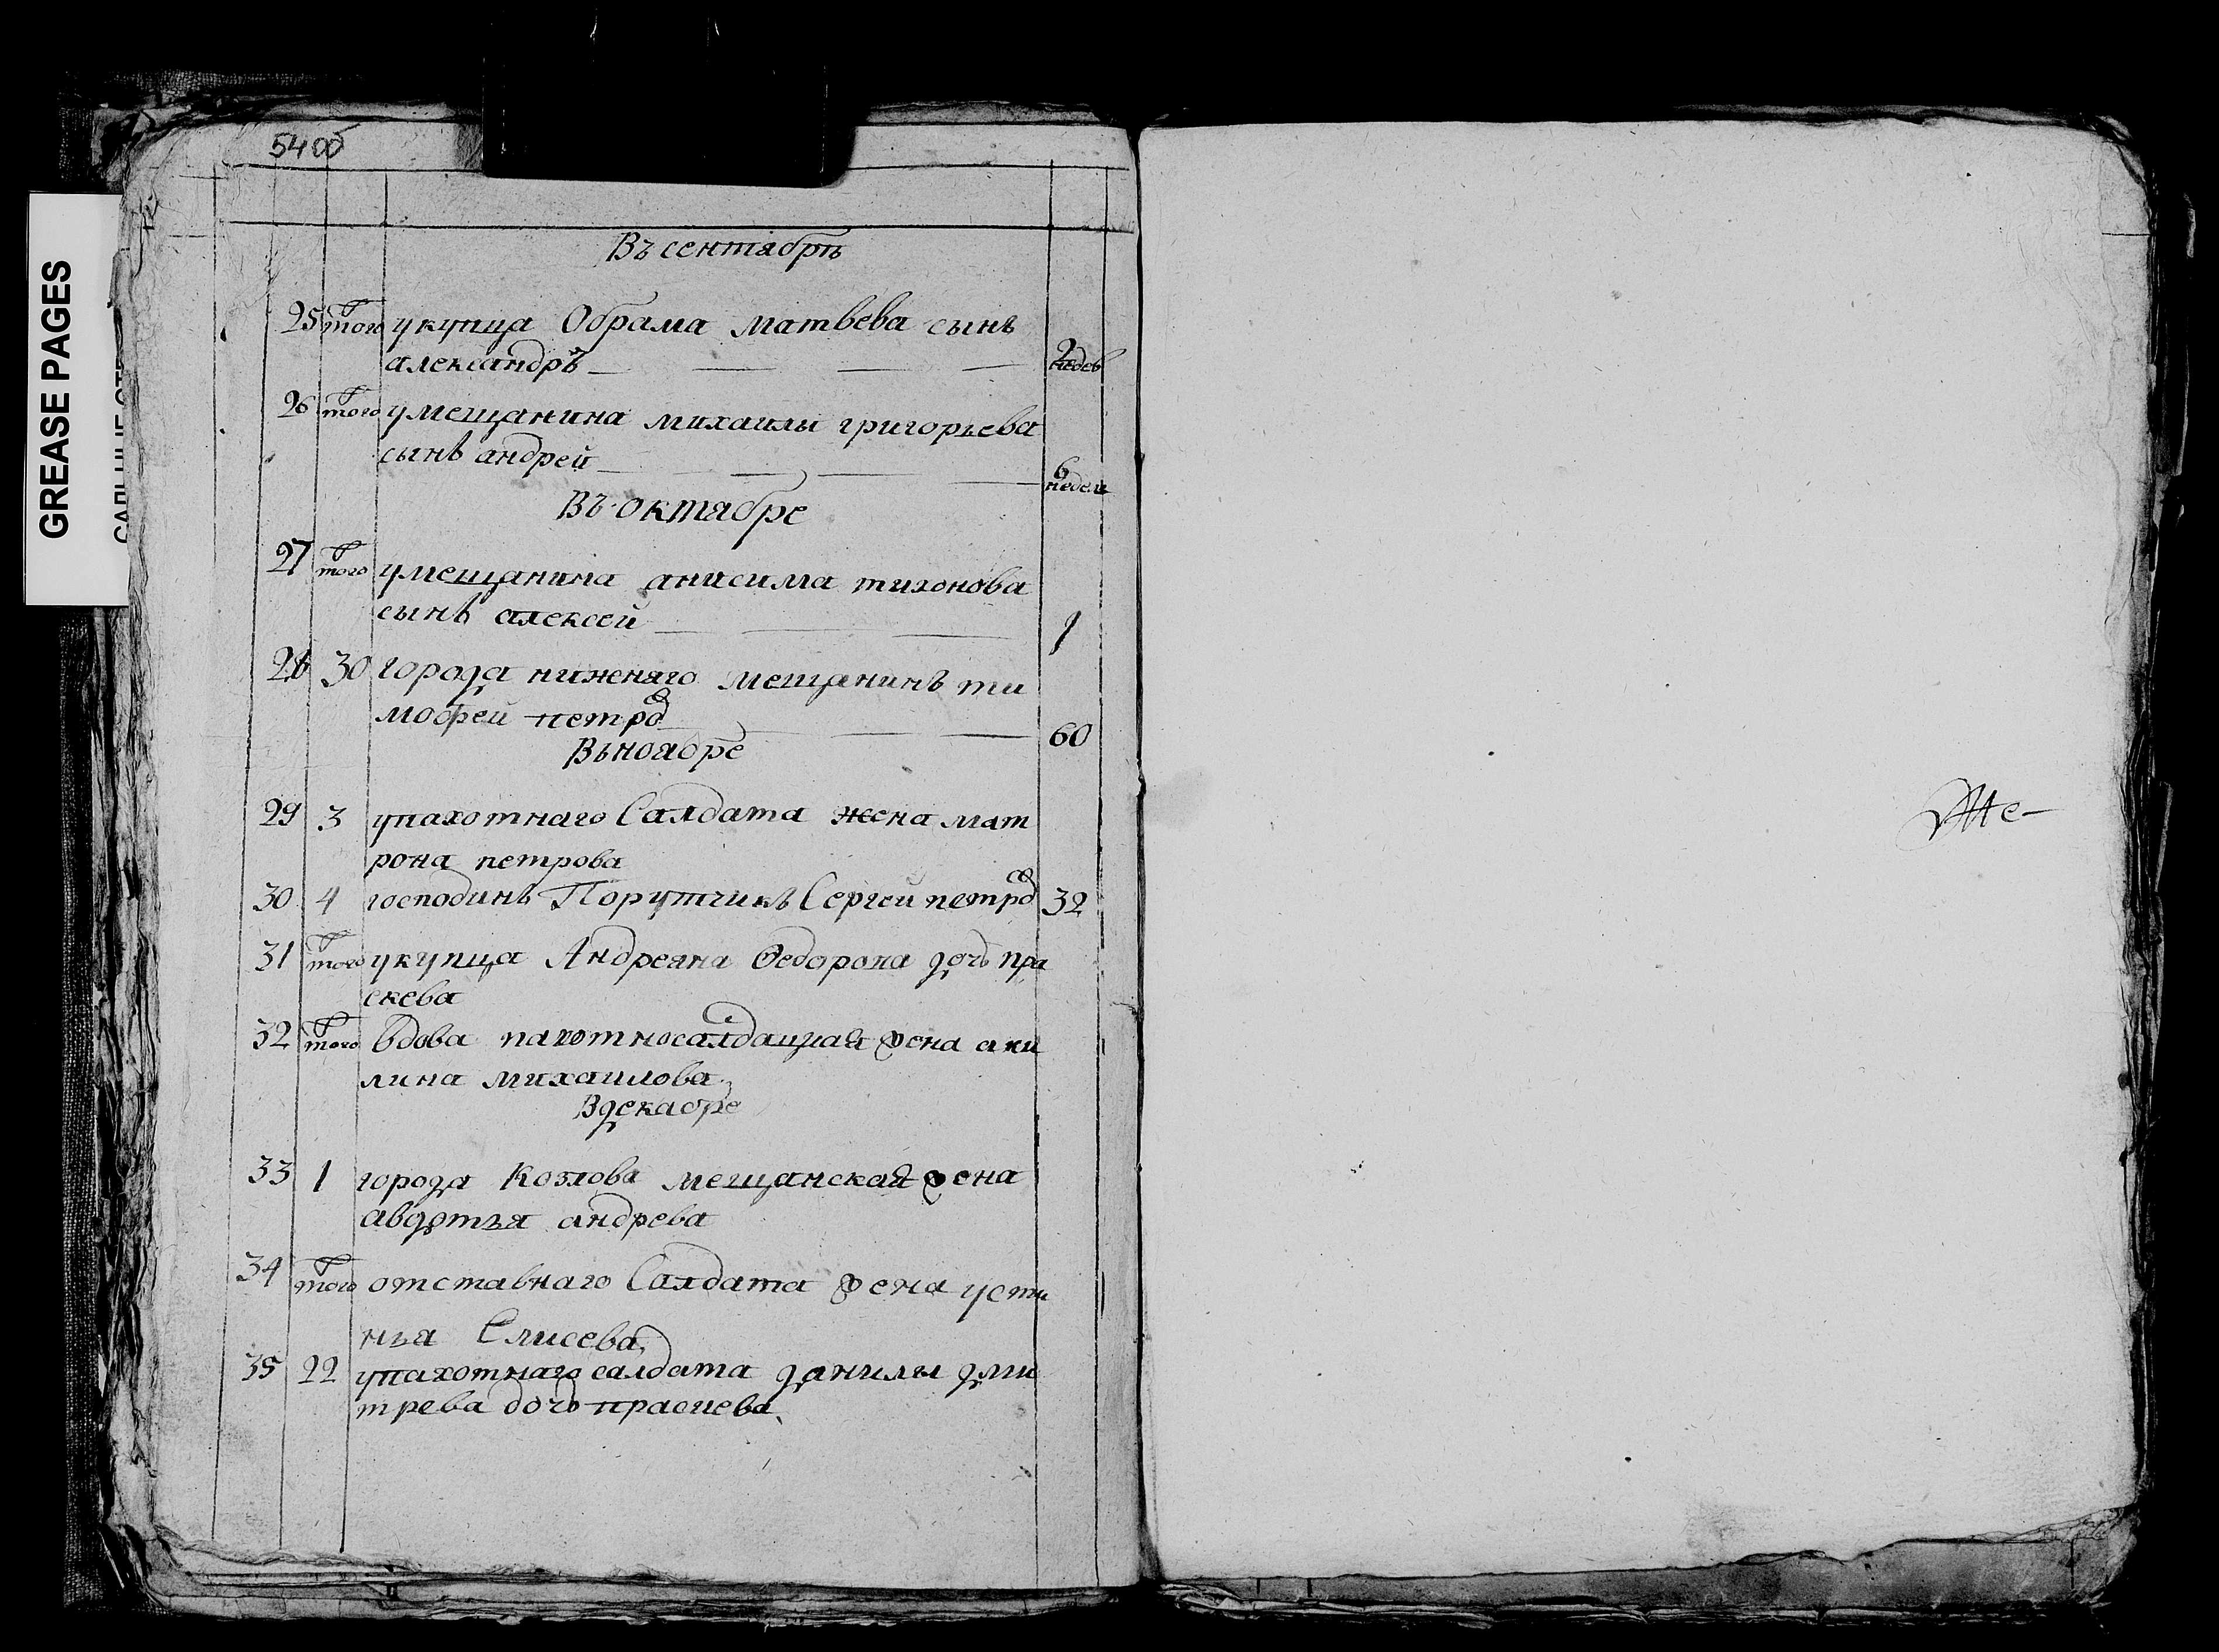 540об
GREASE PAGES
Въ сентябрѣ
25 того у купца Обрама матвева сынъ
александръ 2 недел
26 того у мещанина михаилы григорьева
сынъ андрей 6 недель
Въ октябре
27 того у мещанина анисима тихонова
сынъ алексей 1
28 30 города нижняго мещанинъ ти
мофей петров 60
Въ ноябре
29 3 у пахотнаго Салдата жена мат
рона петрова
30 4 господинъ Порутчикъ Сергей петров 32
31 того у купца Андреяна Федорова дочь пра
скева
32 того вдова пахотносалдацкая жена аки
лина михаилова
В декабре
33 1 города Козлова мещанская жена
авдотья андрева
34 того отставнаго Салдата жена усти
нья Елисева
35 22 у пахотнаго салдата данилы дми
трева дочь праскева
Же-